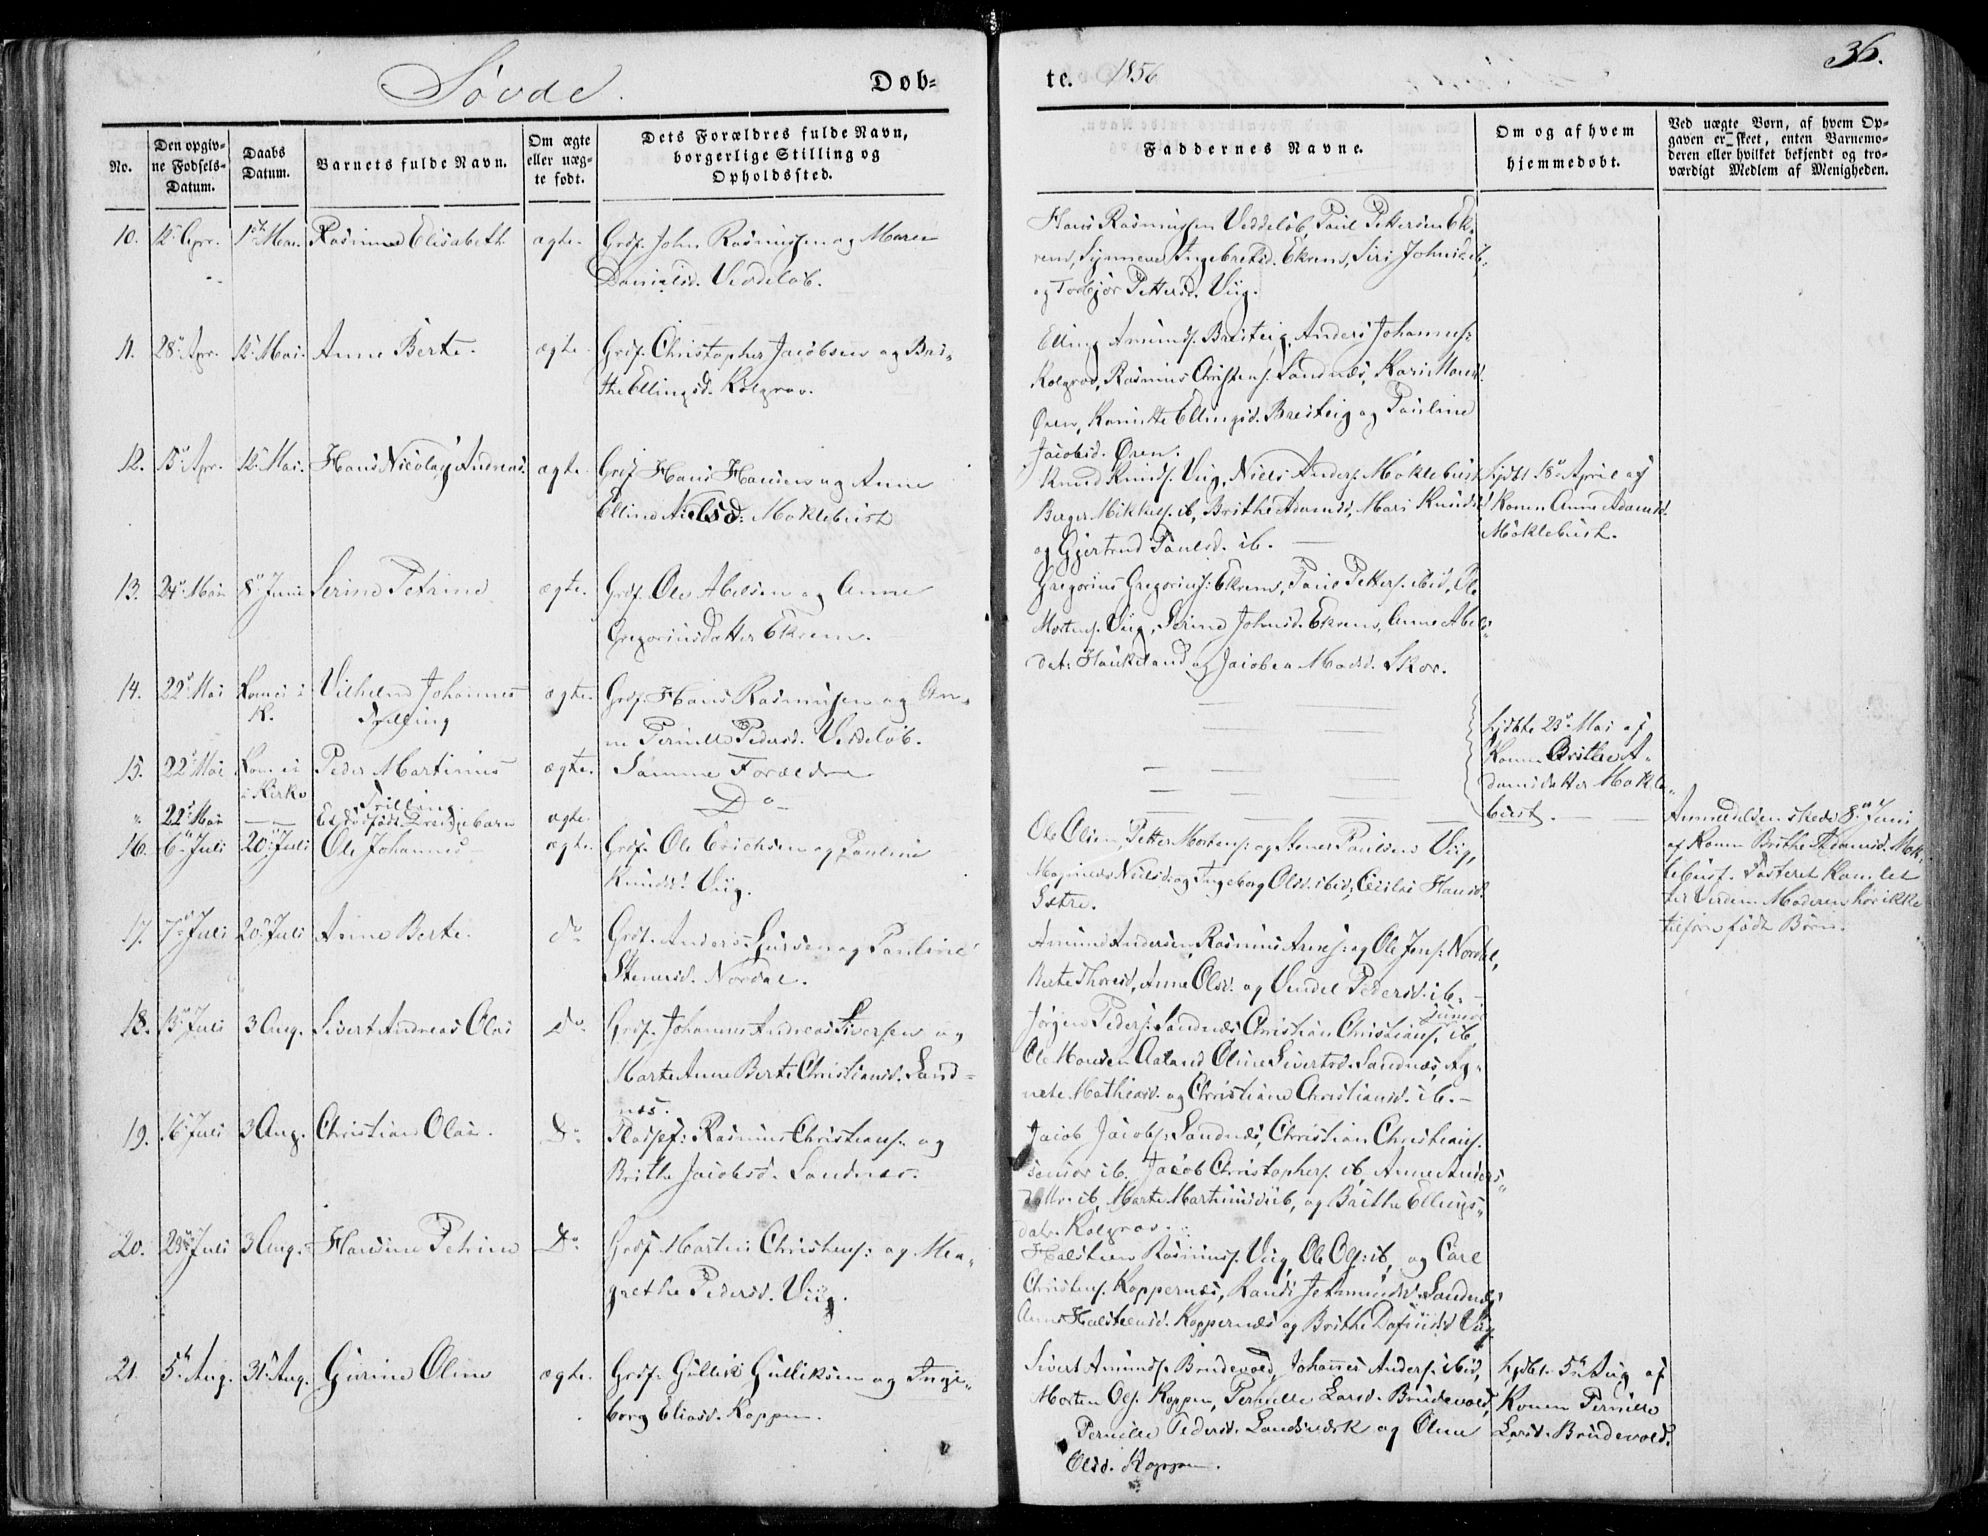 Søvde.
Døb=
te. 1856
36.
No.
Den opgiv-
ne Fødsels-
Datum.
Daabs
Datum.
Barnets fulde Navn.
Om ægte
eller uæg-
te født.
Dets Forældres fulde Navn,
borgerlige Stilling og
Opholdssted.
Faddernes Navne.
Om og af hvem
hjemmedøbt.
Ved uægte Børn, af hvem Op-
gaven er skeet, enten Barnemo-
deren eller hvilket bekjendt og tro-
værdigt Medlem af Menigheden.
10. 12 Apr. 1ste Mai. Rasmine Elisabeth ægte. Grdf. John Rasmussen og Maren
Danielsd. Veddeløb.
Hans Rasmussen Veddeløb, Paul Pettersen Ek-
rem, Synneve Ingebretsd. Ekrem, Siri Johnsd. ib.
og Torbjør Pettersd. Viig.
11. 28 Apr. 12 Mai. Anne Berte. ægte. Grdf. Christopher Jacobsen og Bri-
the Ellingsd. Kolgrov.
Elling Amunds. Breiteig, Anders Johannes:
Kolgrov, Rasmus Christens. Sandnæs, Kari Monsd.
Øren, Ellingsd. Breiteig og Pauline
Jacobsd. Øren.
12. 15 Apr. 12 Mai. Hans Nicolay Andreas. ægte. Grdf Hans Hansen og Anne
Elline Nielsd: Møklebust
Knud Knuds. Viig, Niels Anders. Møklebust
Berger Mikkels. ib, Brithe Adamsd, Mari Knudsd
og Gjertrud Paulsd. ib.
Hjdbt 18 April af
Konen Anne Adamsd.
Møklebust.
13. 24 Mai 8 Juni Serine Petrine ægte. Grdf. Ole Abelsen og Anne
Gregoriusdatter Ekrem.
Gregorius Gregorius: Ekrem, Paul Petters. ibid, Ole
Mortens. Viig, Serine Johnsd. Ekrem, Anne Abels-
dat: Haukeland og Jacobea Madsd. Skor.
14. 22 Mai Kom ei i
K.
Vilhelm Johannes
Trilling
ægte. Grdf. Hans Rasmussen og An-
ne Pernille Pedersd. Veddeløb.
Hjdbte 23 Mai af
Konen Brithe A-
damsdatter Møkle-
bust.
15. 22 Mai Kom ei
i Kirke
Peder Martinus
Trilling.
ægte. Samme Forældre
" 22 Mai Et dødfødt Drengebarn ægte. Do
Anmeldelsen skede 8 Juni
af Konen Brithe Adamsd. Møk-
lebust. Fosteret kom let
til Verden. Moderen har ikke
tilforn født Børn.
16. 6 Juli 20 Juli Ole Johannes ægte. Grdf. Ole Erichsen og Pauline
Knudsd. Viig.
Ole Olsen, Petter Mortens: og Stener Paulsen Viig,
Nielsd. og Ingeborg Olsd. ibid, Hansd.
Sætre.
17. 7 Juli 20 Juli Anne Berte. do Grdf. Anders Sjursen og Pauline
Stenersd. Nordal.
Amund Andersen, Rasmus Arnes: og Ole Jens: Nordal,
Berte Thoresd, Anne Olsd. og Vendel Pedersd. ib.
18. 15 Juli 3 Aug. Sivert Andreas Olai Do Grdf. Johannes Andreas Siversen og
Marte Anne Berte Christiansd. Sand-
næs.
Jørgen Peders: Sandnæs, Christian Christians. junior ib
Ole Monsen Aaland, Oline Sivertsd. Sandnæs, Ag-
nete Mathiasd. og Christiane Christiansd. ib.
19. 16 Juli 3 Aug. Christian Olai. Do Rasmus Christians. og
Brithe Jacobsd. Sandnæs.
Jacob Jacobs: Sandnæs, Christian Christians.
senior ib, Jacob Christophers. ib, Anne Anders-
datter ib, Marte Martinusd. ib, og Brithe Ellings-
dat. Kolgrov.
20. 29 Juli 3 Aug. Hansine Petrine Do Grdf. Martin Christens: og Mar-
grethe Pedersd. Viig.
Halsteen Rasmuss. Viig, Ole Ols: ib, og Carl
Christens. Koppernæs, Randi Jetmundsd. Sandnæs
Anne Halsteensd. Koppernæs og Brithe Viig
21. 5te Aug. 31 Aug. Gurine Oline ægte. Grdf. Gullik Gulliksen og Inge-
borg Eliasd. Koppen.
Sivert Amunds. Brudevold, Johannes Anders. ibid,
Morten Ols. Koppen, Pernille Larsd. Brudevold,
Pernille Pedersd. Landsværk og Oline
Olsd. Koppen.
hjdbt. 5te Aug af
Konen Pernille
Larsd. Brudevold.